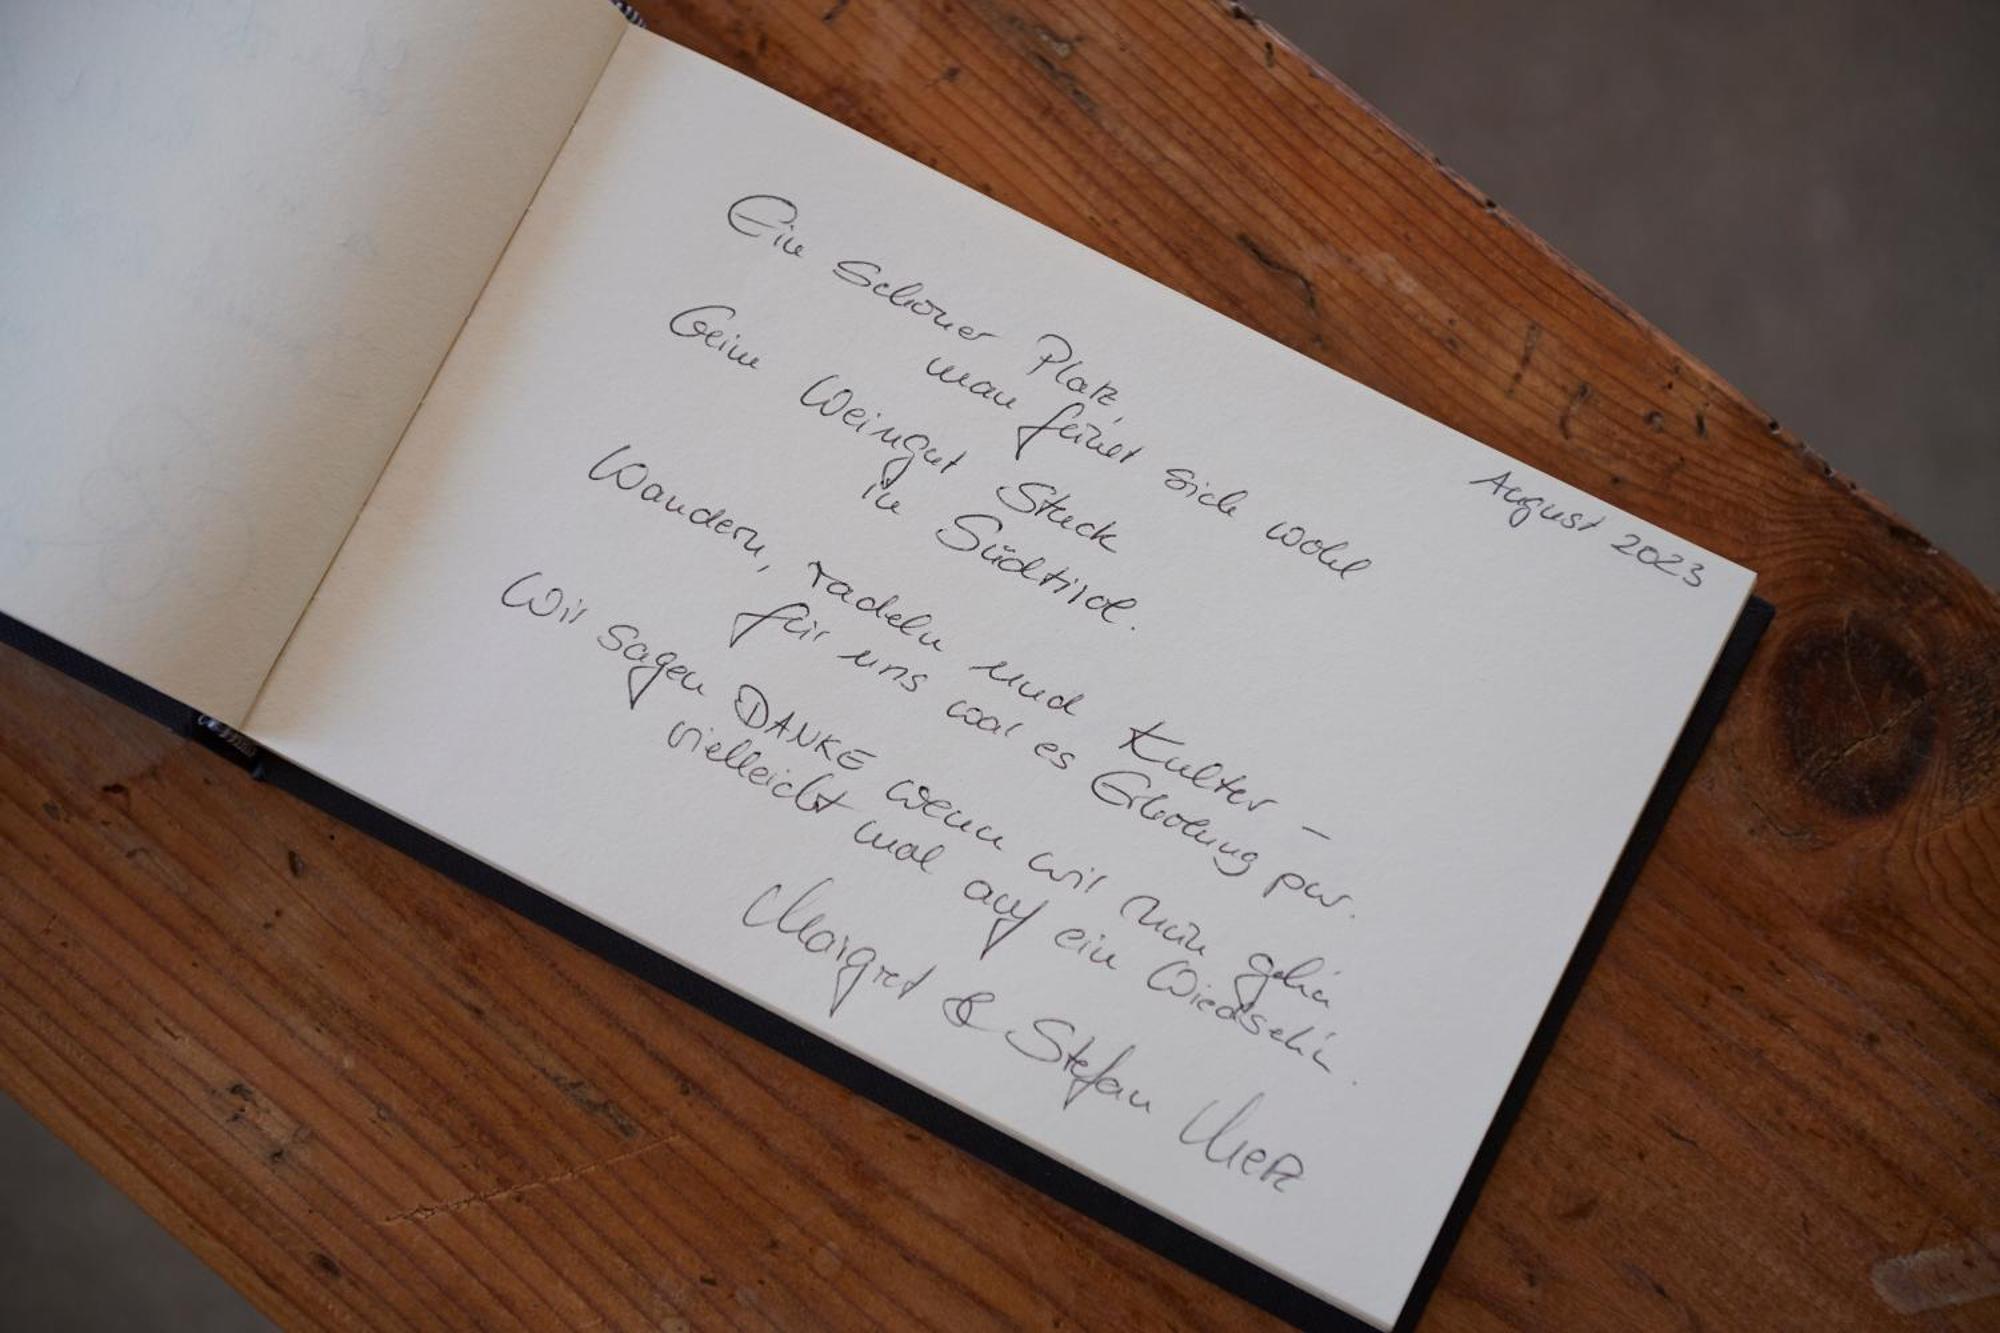 August 2023
Ein schöner Platz,
man fühlet sich wohl
beim Weingut Stuck
in Südtirol.
Wandern, radeln und Kultur –
für uns war es Erholung pur.
Wir sagen DANKE wenn wir nun gehn
vielleicht mal auf ein Wiedsehn.
Margret & Stefan